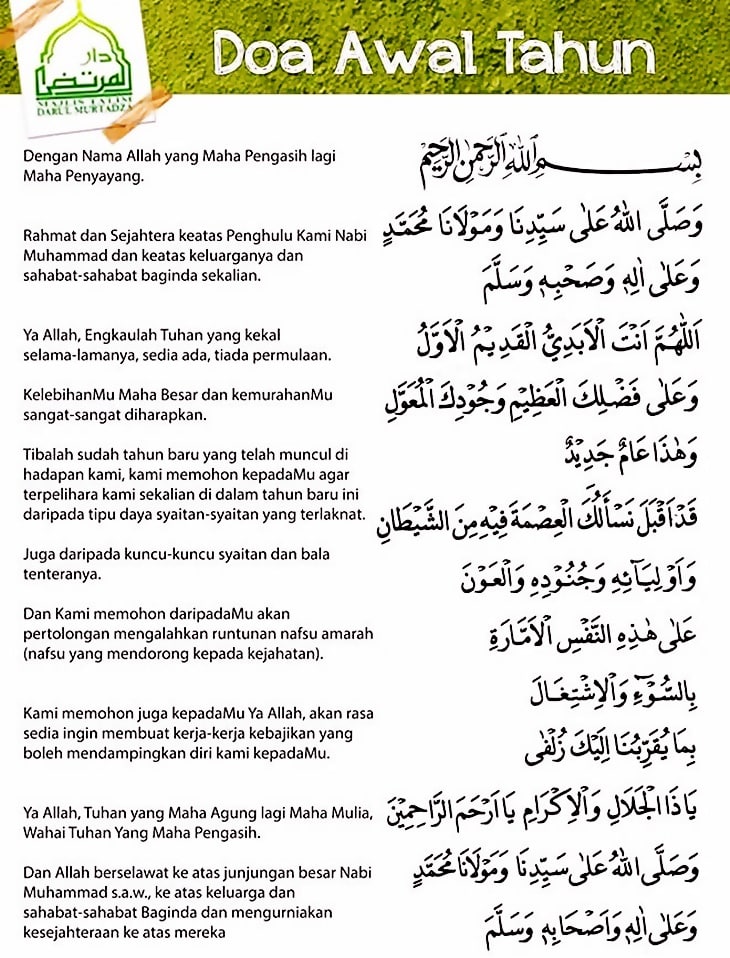 دار
المرتضى
MAJLIS TA'LIM
DARUL MURTADZA
Doa Awal Tahun
Dengan Nama Allah yang Maha Pengasih lagi
Maha Penyayang.
Rahmat dan Sejahtera keatas Penghulu Kami Nabi
Muhammad dan keatas keluarganya dan
sahabat-sahabat baginda sekalian.
Ya Allah, Engkaulah Tuhan yang kekal
selama-lamanya, sedia ada, tiada permulaan.
KelebihanMu Maha Besar dan kemurahanMu
sangat-sangat diharapkan.
Tibalah sudah tahun baru yang telah muncul di
hadapan kami, kami memohon kepadaMu agar
terpelihara kami sekalian di dalam tahun baru ini
daripada tipu daya syaitan-syaitan yang terlaknat.
Juga daripada kuncu-kuncu syaitan dan bala
tenteranya.
Dan Kami memohon daripadaMu akan
pertolongan mengalahkan runtunan nafsu amarah
(nafsu yang mendorong kepada kejahatan).
Kami memohon juga kepadaMu Ya Allah, akan rasa
sedia ingin membuat kerja-kerja kebajikan yang
boleh mendampingkan diri kami kepadaMu.
Ya Allah, Tuhan yang Maha Agung lagi Maha Mulia,
Wahai Tuhan Yang Maha Pengasih.
Dan Allah berselawat ke atas junjungan besar Nabi
Muhammad s.a.w., ke atas keluarga dan
sahabat-sahabat Baginda dan mengurniakan
kesejahteraan ke atas mereka
بِسْمِ اللهِ الرَّحْمٰنِ الرَّحِيْمِ
وَصَلَّى اللهُ عَلٰى سَيِّدِنَا وَمَوْلَانَا مُحَمَّدٍ
وَعَلٰى اٰلِهٖ وَصَحْبِهٖ وَسَلَّمَ
اَللّٰهُمَّ اَنْتَ الْاَبَدِيُّ الْقَدِيْمُ الْاَوَّلُ
وَعَلٰى فَضْلِكَ الْعَظِيْمِ وَجُوْدِكَ الْمُعَوَّلِ
وَهٰذَا عَامٌ جَدِيْدٌ
قَدْ اَقْبَلَ نَسْأَلُكَ الْعِصْمَةَ فِيْهِ مِنَ الشَّيْطَانِ
وَاَوْلِيَآئِهِ وَجُنُوْدِهِ وَالْعَوْنَ
عَلٰى هٰذِهِ النَّفْسِ الْاَمَّارَةِ
بِالسُّوْٓءِ وَالْاِشْتِغَالَ
بِمَا يُقَرِّبُنَا اِلَيْكَ زُلْفٰى
يَا ذَا الْجَلَالِ وَالْاِكْرَامِ يَا اَرْحَمَ الرَّاحِمِيْنَ
وَصَلَّى اللهُ عَلٰى سَيِّدِنَا وَمَوْلَانَا مُحَمَّدٍ
وَعَلٰى اٰلِهٖ وَاَصْحَابِهٖ وَسَلَّمَ